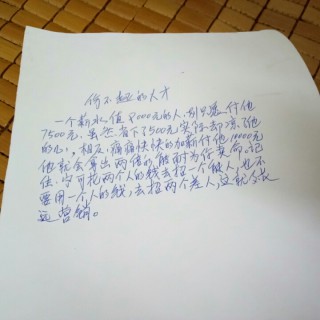 价不起的人才
一个薪水值8000元的人,别只是付他
7500元,虽然省下了500元,实际却凉了他
的心,相反,痛痛快快的加薪付他10000元
他就会拿出两倍的能耐为你卖命,记
住:宁可花两个人的钱去招一个能人,也不
要用一个人的钱,去招两个差人,这就叫
营销。